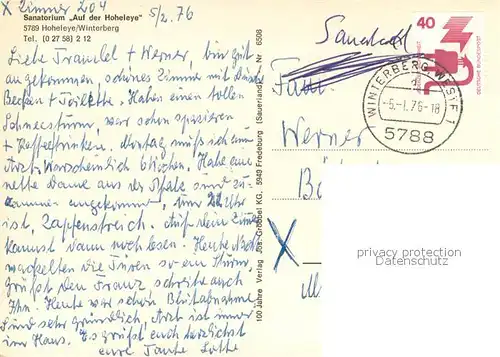 X Zimmer 204
5/2. 76
Sanatorium „Auf der Hoheleye"
5789 Hoheleye/Winterberg
Tel. (0 27 58) 2 12
Liebe Traudel + Werner, bin gut
angekommen, schönes Zimmer mit Dusche
Becken + Toilette. Haben einen tollen
Schneesturm, war schon spazieren
+ Kaffeetrinken. Montag muß ich zum
Arzt. Warscheinlich 6 Wochen. Habe eine
nette Dame aus der Pfalz sind zu-
sammen angekommen. Um 22 Uhr
ist Zapfenstreich. Auf dem Zimmer
kannst dann noch lesen. Heute Nacht
wackelten die Türen so ein Sturm,
Grüß den Franz schreibe auch
Ihn. Heute war schon Blutabnahme
Sind sehr gründlich, Arzt ist immer
im Haus. Es grüßt euch herzlichst
eure Tante Lotte
100 Jahre Verlag Jos. Grobbel KG., 5949 Fredeburg (Sauerland) - Nr. 6508
Sauerland
40
DEUTSCHE BUNDESPOST
WINTERBERG, WESTF 1
-6.-1.76-18
5788
Fam.
Werner
X
privacy protection
Datenschutz